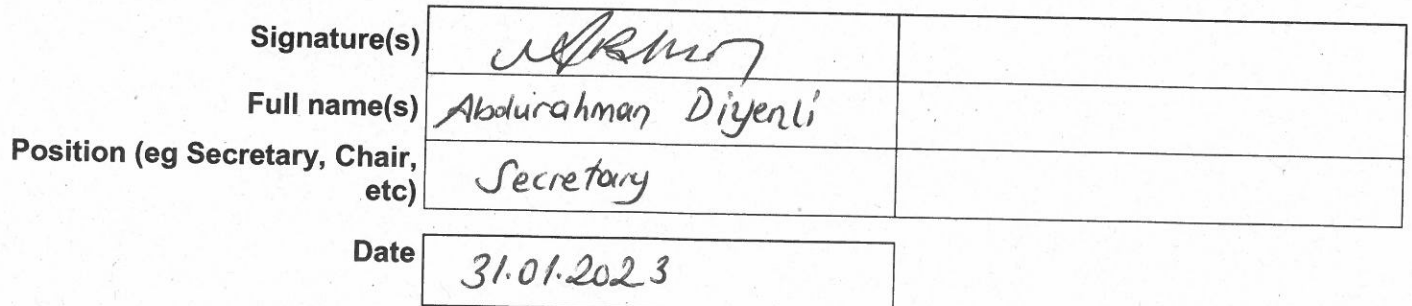 Signature(s)
Full name(s) Abdurahman Diyenli
Position (eg Secretary, Chair,
etc) Secretary
Date 31.01.2023